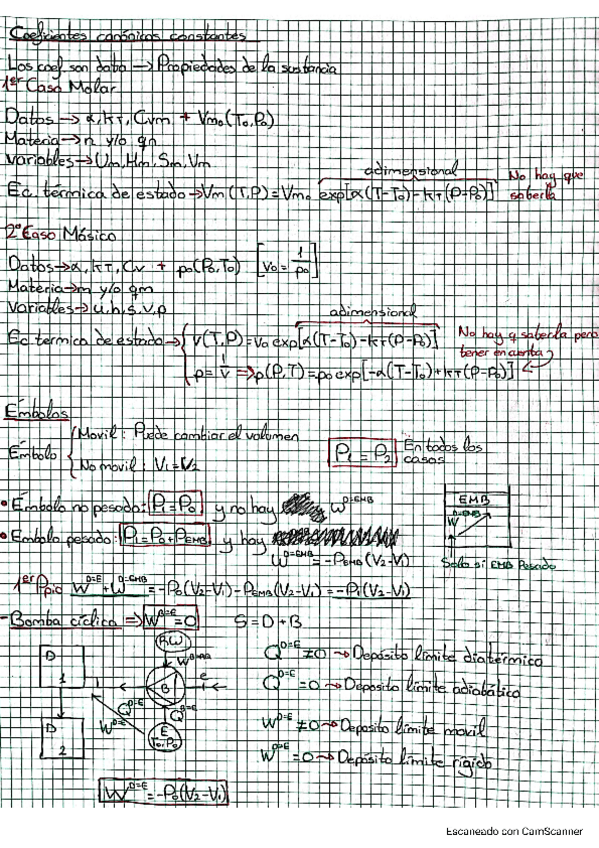 Coeficientes canónicos constantes
Los coef son dato → Propiedades de la sustancia
1er Caso Molar
Datos → α, kT, Cvm + Vmo(To,Po)
Materia → n y/o qn
Variables → Um, Hm, Sm, Vm
adimensional
Ec. térmica de estado → Vm(T,P) = Vmo exp[α(T-To)-kT(P-Po)] No hay que saberla
2º Caso Másico
Datos → α, kT, Cv + ρo(Po,To) [Vo = 1/ρo]
Materia → m y/o qm
Variables → u, h, s, v, ρ
adimensional
Ec termica de estado → { v(T,P) = vo exp[α(T-To)-kT(P-Po)] No hay q saberla pero tener en cuenta
ρ = 1/v ⇒ ρ(P,T) = ρo exp[-α(T-To)+kT(P-Po)]
Émbolos
Émbolo { Movil: Puede cambiar el volumen
No movil: V1=V2
P1 = P2 En todos los casos
• Émbolo no pesado: P1=Po y no hay W D=EMB
• Embolo pesado: P1=Po+PEMB y hay
W D=EMB = -PEMB(V2-V1)
EMB
W D=EMB
Solo si EMB Pesado
1er Ppio W D=E + W D=EMB = -Po(V2-V1)-PEMB(V2-V1) = -P1(V2-V1)
- Bomba cíclica ⇒ W B=E = 0 S=D+B
RW
D
1
B
e
E
To,Po
Q D=E
Q B=E
W D=E
D
2
Q D=E ≠0 → Depósito límite diatérmico
Q D=E =0 → Deposito límite adiabático
W D=E ≠0 → Deposito límite movil
W D=E =0 → Depósito límite rígido
W D=E = -Po(V2-V1)
Escaneado con CamScanner